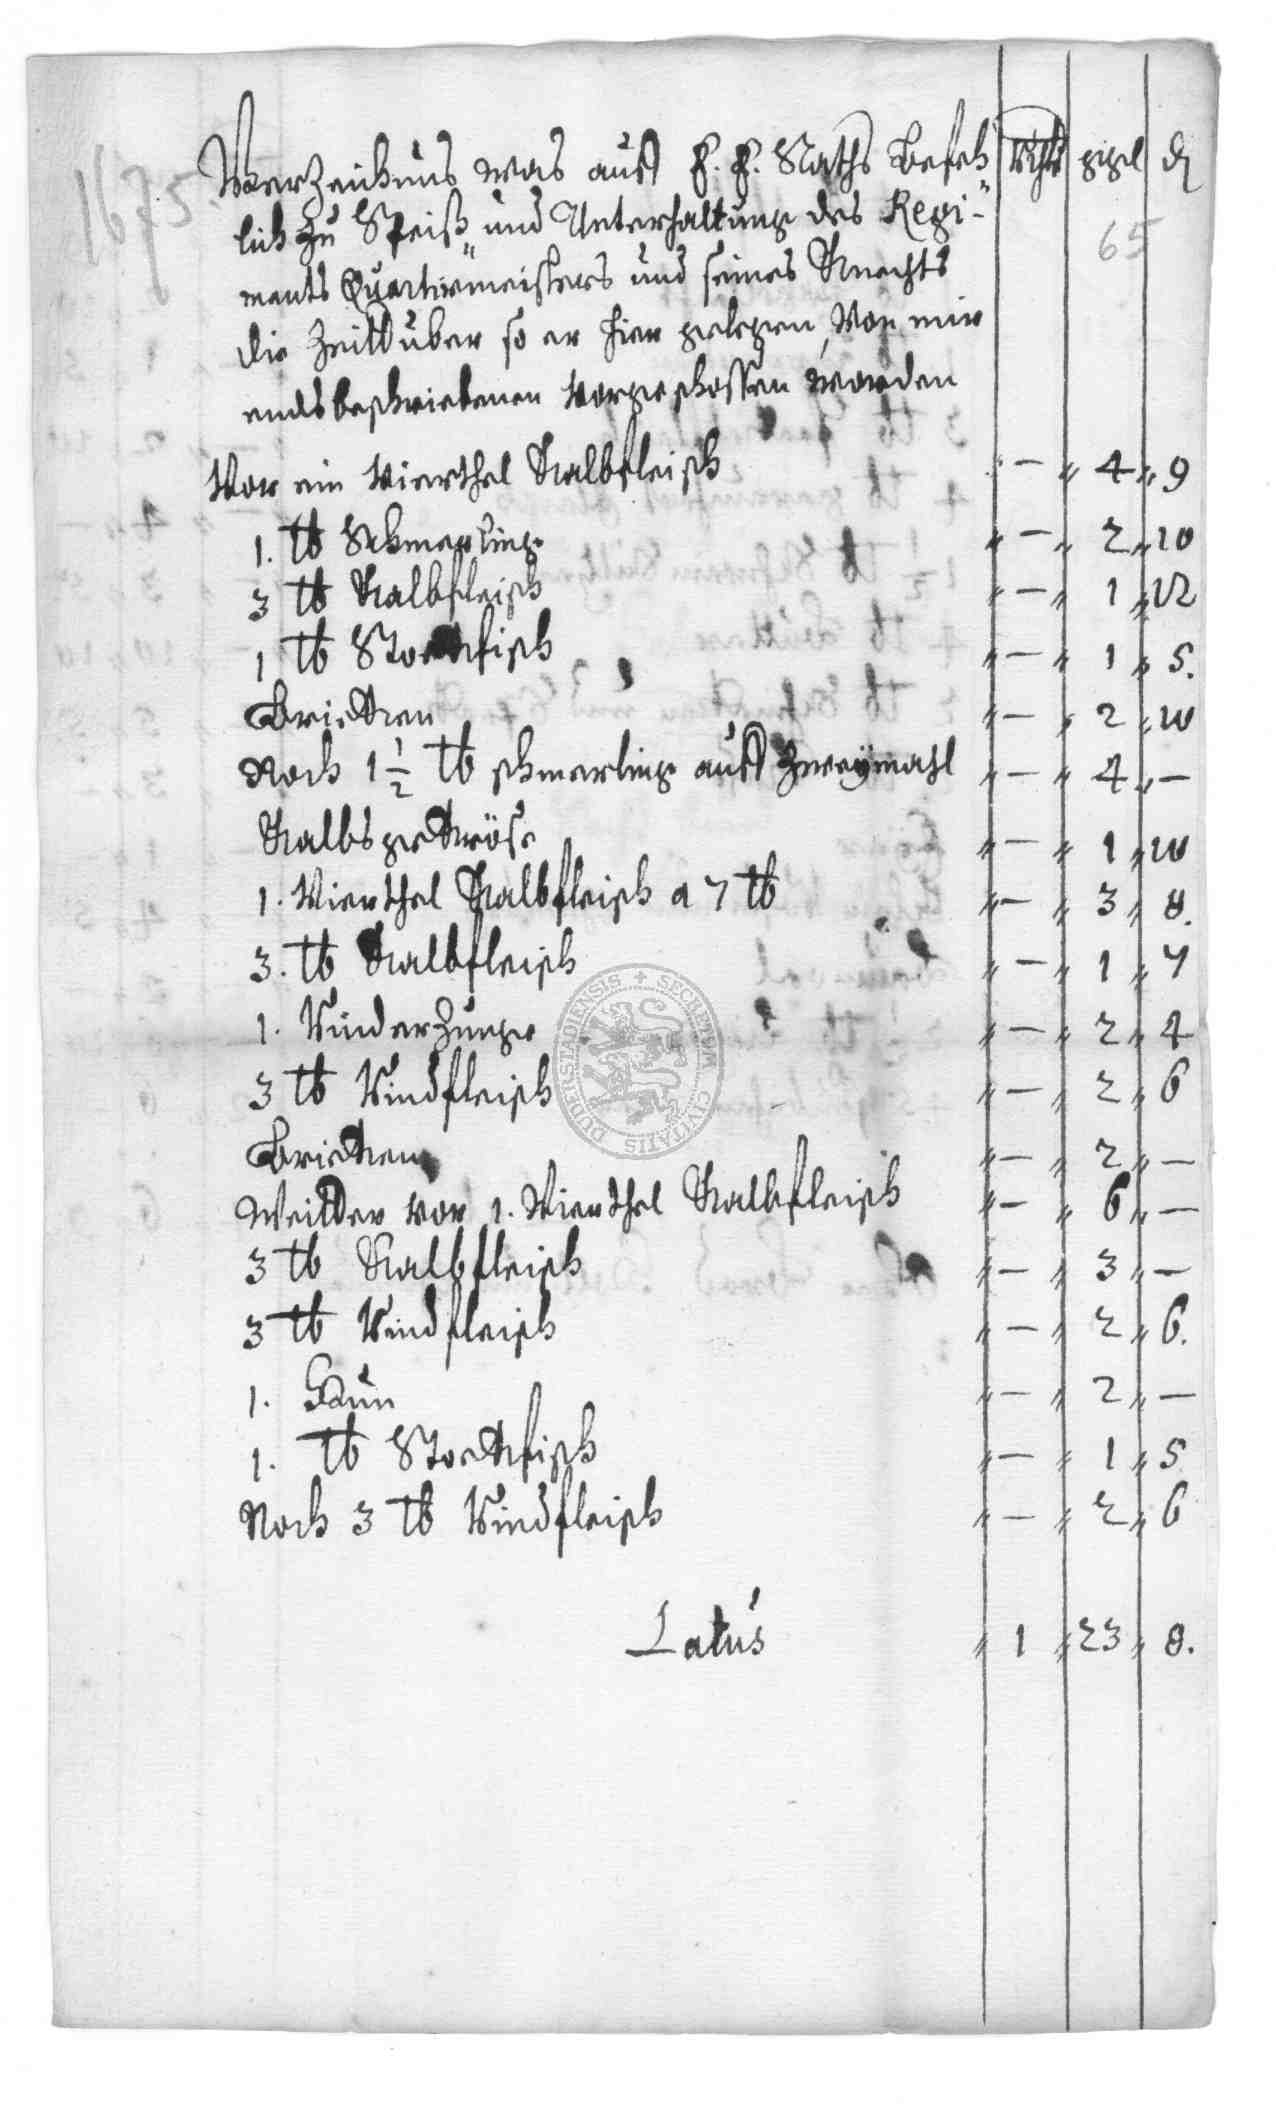 1673.
Verzeichnus was auß E. E. Raths Befeh- Rthl ggl d
lich zu Speiß- und Unterhaltung des Regi- 65
ments Quartirmeisters und seines Knechts
die Zeitt uber so er hier gelegen, von mir
endsbeschriebenen vorgeschossen worden
Vor ein Vierthel Kalbfleisch – 4 9
1. lb Schmerling – 2 10
3 lb Kalbfleisch – 1 12
1 lb Stockfisch – 1 5.
Bricken – 2 10
Noch 1 1/2 lb schmerling auß zweymahl – 4 –
Kalbsgekröse – 1 10
1. Vierthel Kalbfleisch a 7 lb – 3 8.
3. lb Kalbfleisch – 1 7
1. Rinderzunge – 2 4
3 lb Rindfleisch – 2 6
Bricken – 2 –
Weitter vor 1. Vierthel Kalbfleisch – 6 –
3 lb Kalbfleisch – 3 –
3 lb Rindfleisch – 2 6.
1. Hun – 2 –
1. lb Stockfisch – 1 5
Noch 3 lb Rindfleisch – 2 6
Latus 1 23 8.
SECRETUM CIVITATIS DUDERSTADIENSIS